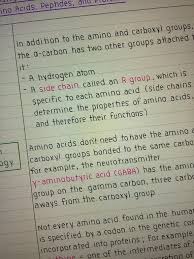 ino Acids, Peptides, and
In addition to the amino and carboxyl groups,
the α-carbon has two other groups attached t
it:
- A hydrogen atom
- A side chain called an R group, which is
specific to each amino acid (side chains
determine the properties of amino acids
and therefore their functions)
Amino acids don't need to have the amino a
carboxyl groups bonded to the same carbo
for example, the neurotransmitter
γ-aminobutyric acid (GABA) has the amino
group on the gamma carbon, three carbo
aways from the carboxyl group
ogy
Not every amino acid found in the human
is specified by a codon in the genetic co
incorporated into proteins; for example
is one of the intermediates of